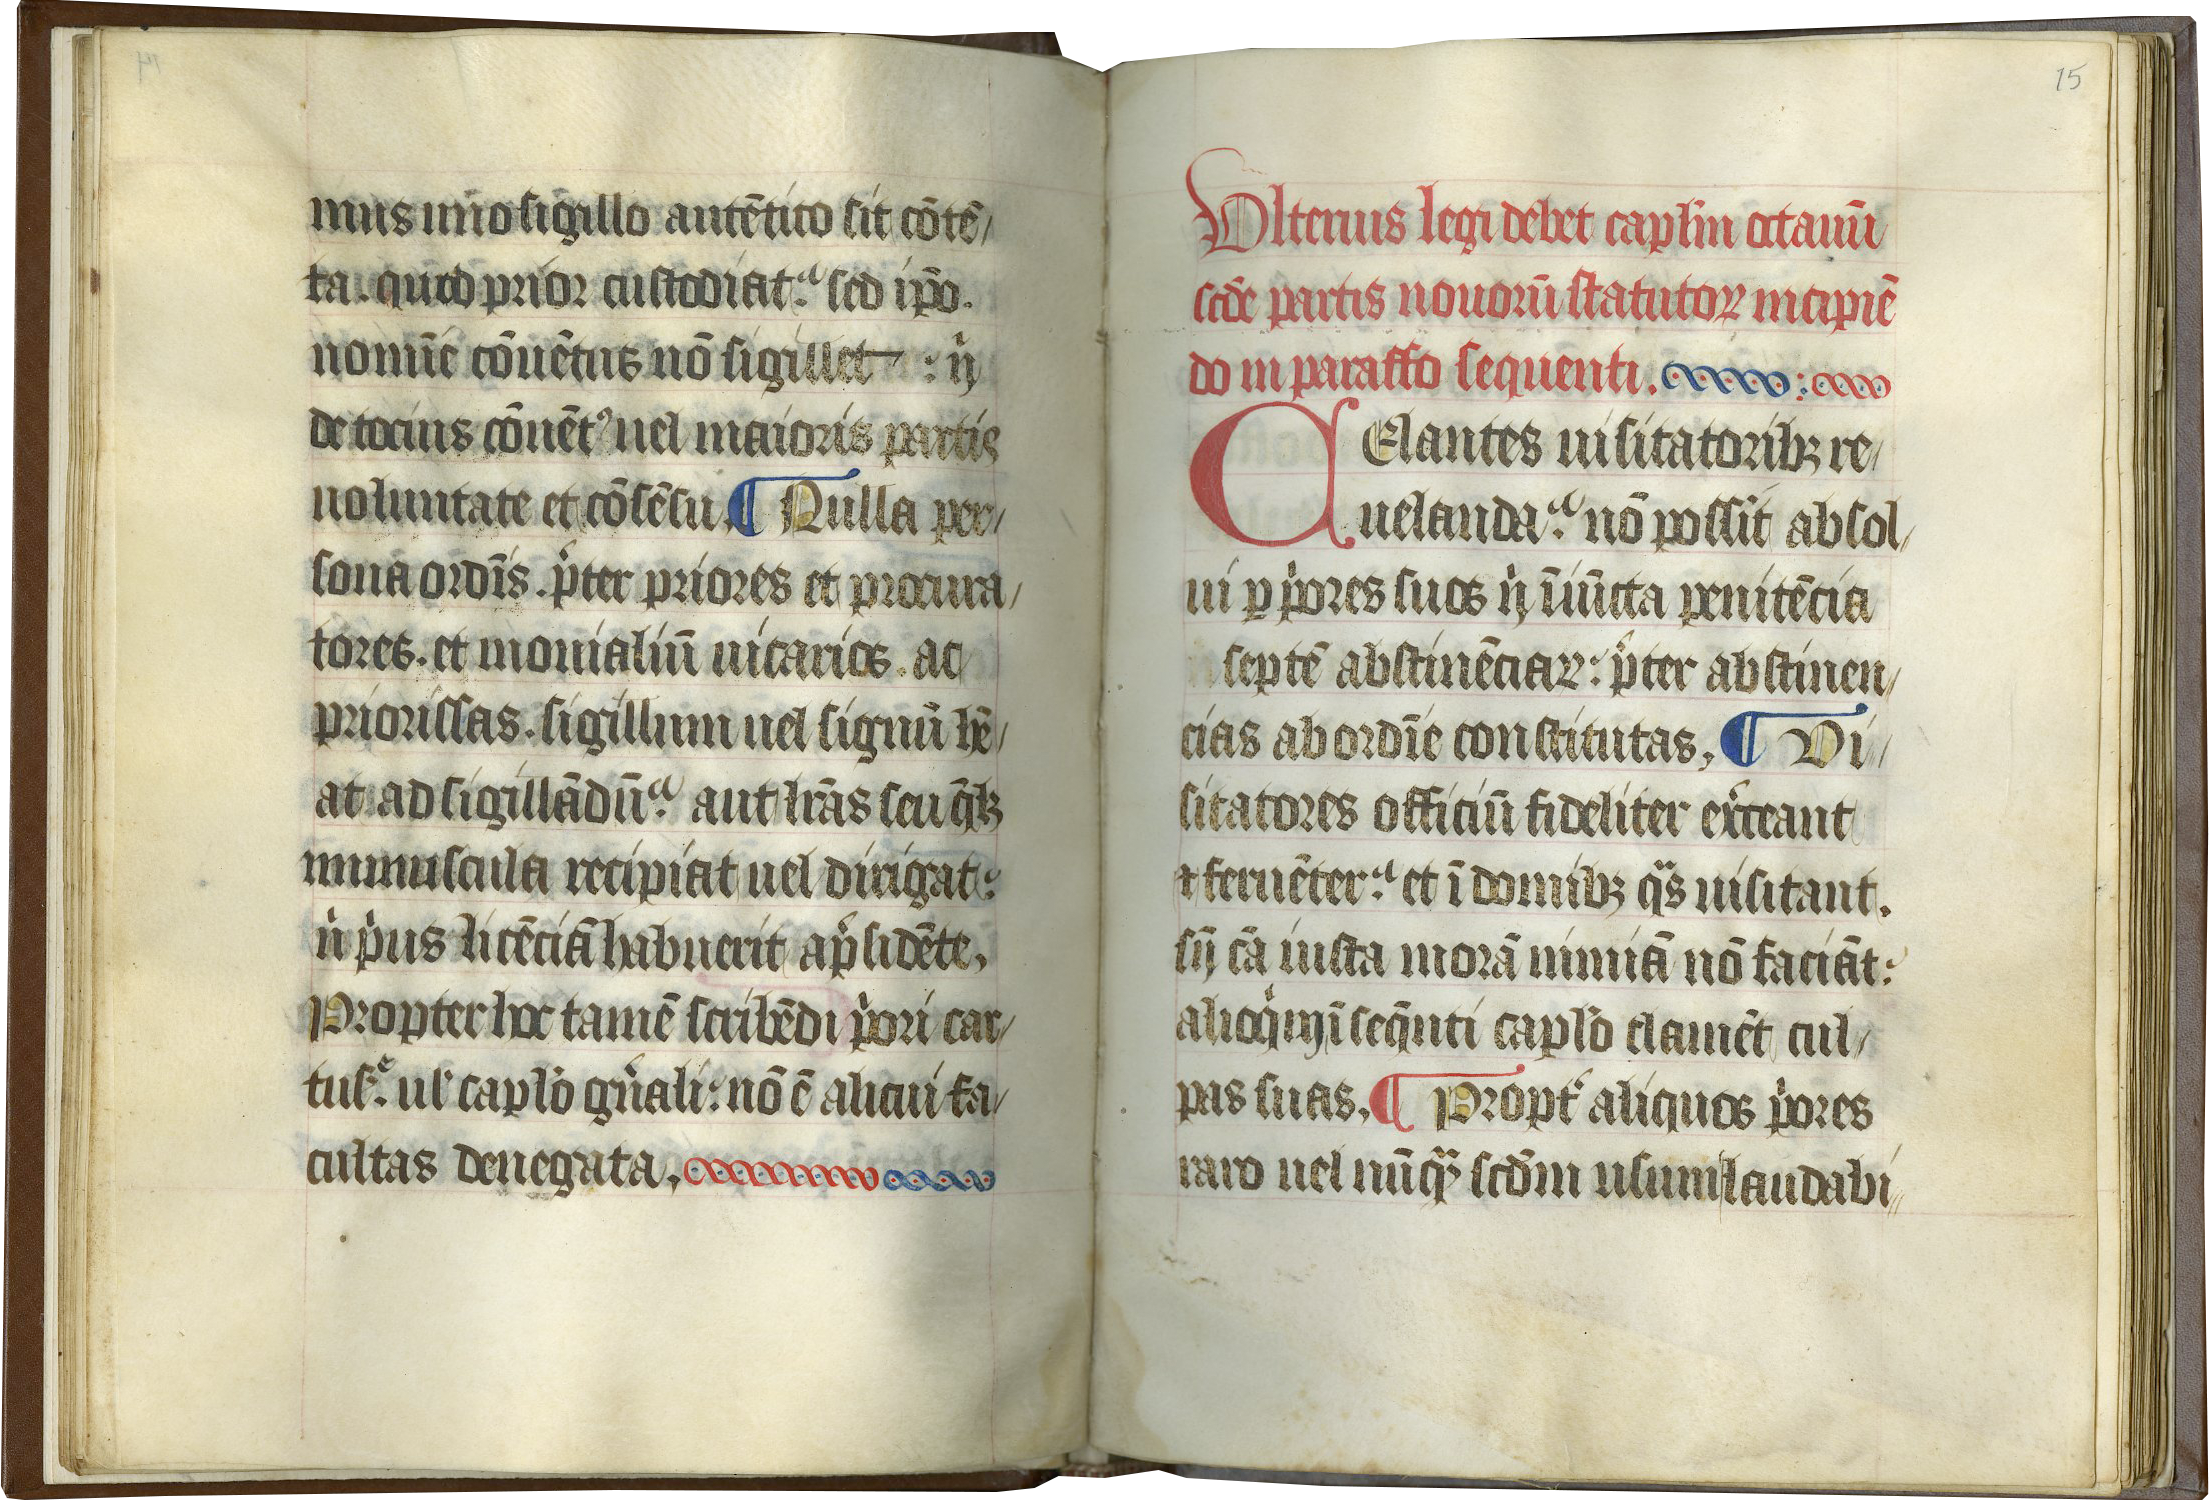 14
mus uno sigillo autētico sit cōtē/
ta. quod prior custodiat. sed ip̄o.
nomīe cōuētus nō sigillet : n̄
de tocius cōuētꝰ uel maioris partis
uoluntate et cōsēsu. ¶ Nulla per/
sona ordīs. p̄ter priores et procura/
tores. et monialiū uicarios. ac
priorissas. sigillum uel signū hē/
at ad sigillādū. aut lr̄as seu q̄ꝫ
munuscula recipiat uel dirigat:
n̄ pͥus licēciā habuerit a p̄sidēte,
Propter hoc tamē scribēdi pͥori car/
tuſ. ul' cap̄lo gn̄ali: nō ē alicui fa/
cultas denegata,
15
Ulterius legi debet cap̄lm octauū
scd̄e partis nouorū statutoꝝ incipiē
do in paraffo sequenti.
CElantes uisitatoribꝫ re/
uelanda. nō possūt absol/
ui ꝑ pͥores suos n̄ iniūcta penitēcia
septē abstinēciaꝝ: p̄ter abstinen/
cias ab ordīe constitutas, ¶ Vi/
sitatores officiū fideliter ex̄ceant
⁊ feruēter. et ī domibꝫ qͣs uisitant.
sn̄ cā iusta morā nimiā nō faciāt:
alioqͥn ī seq̄nti cap̄lo clamēt cul/
pas suas, ¶ Propt̛ aliquos pͥores
raro uel nūqͣ scd̄m usum laudabi/